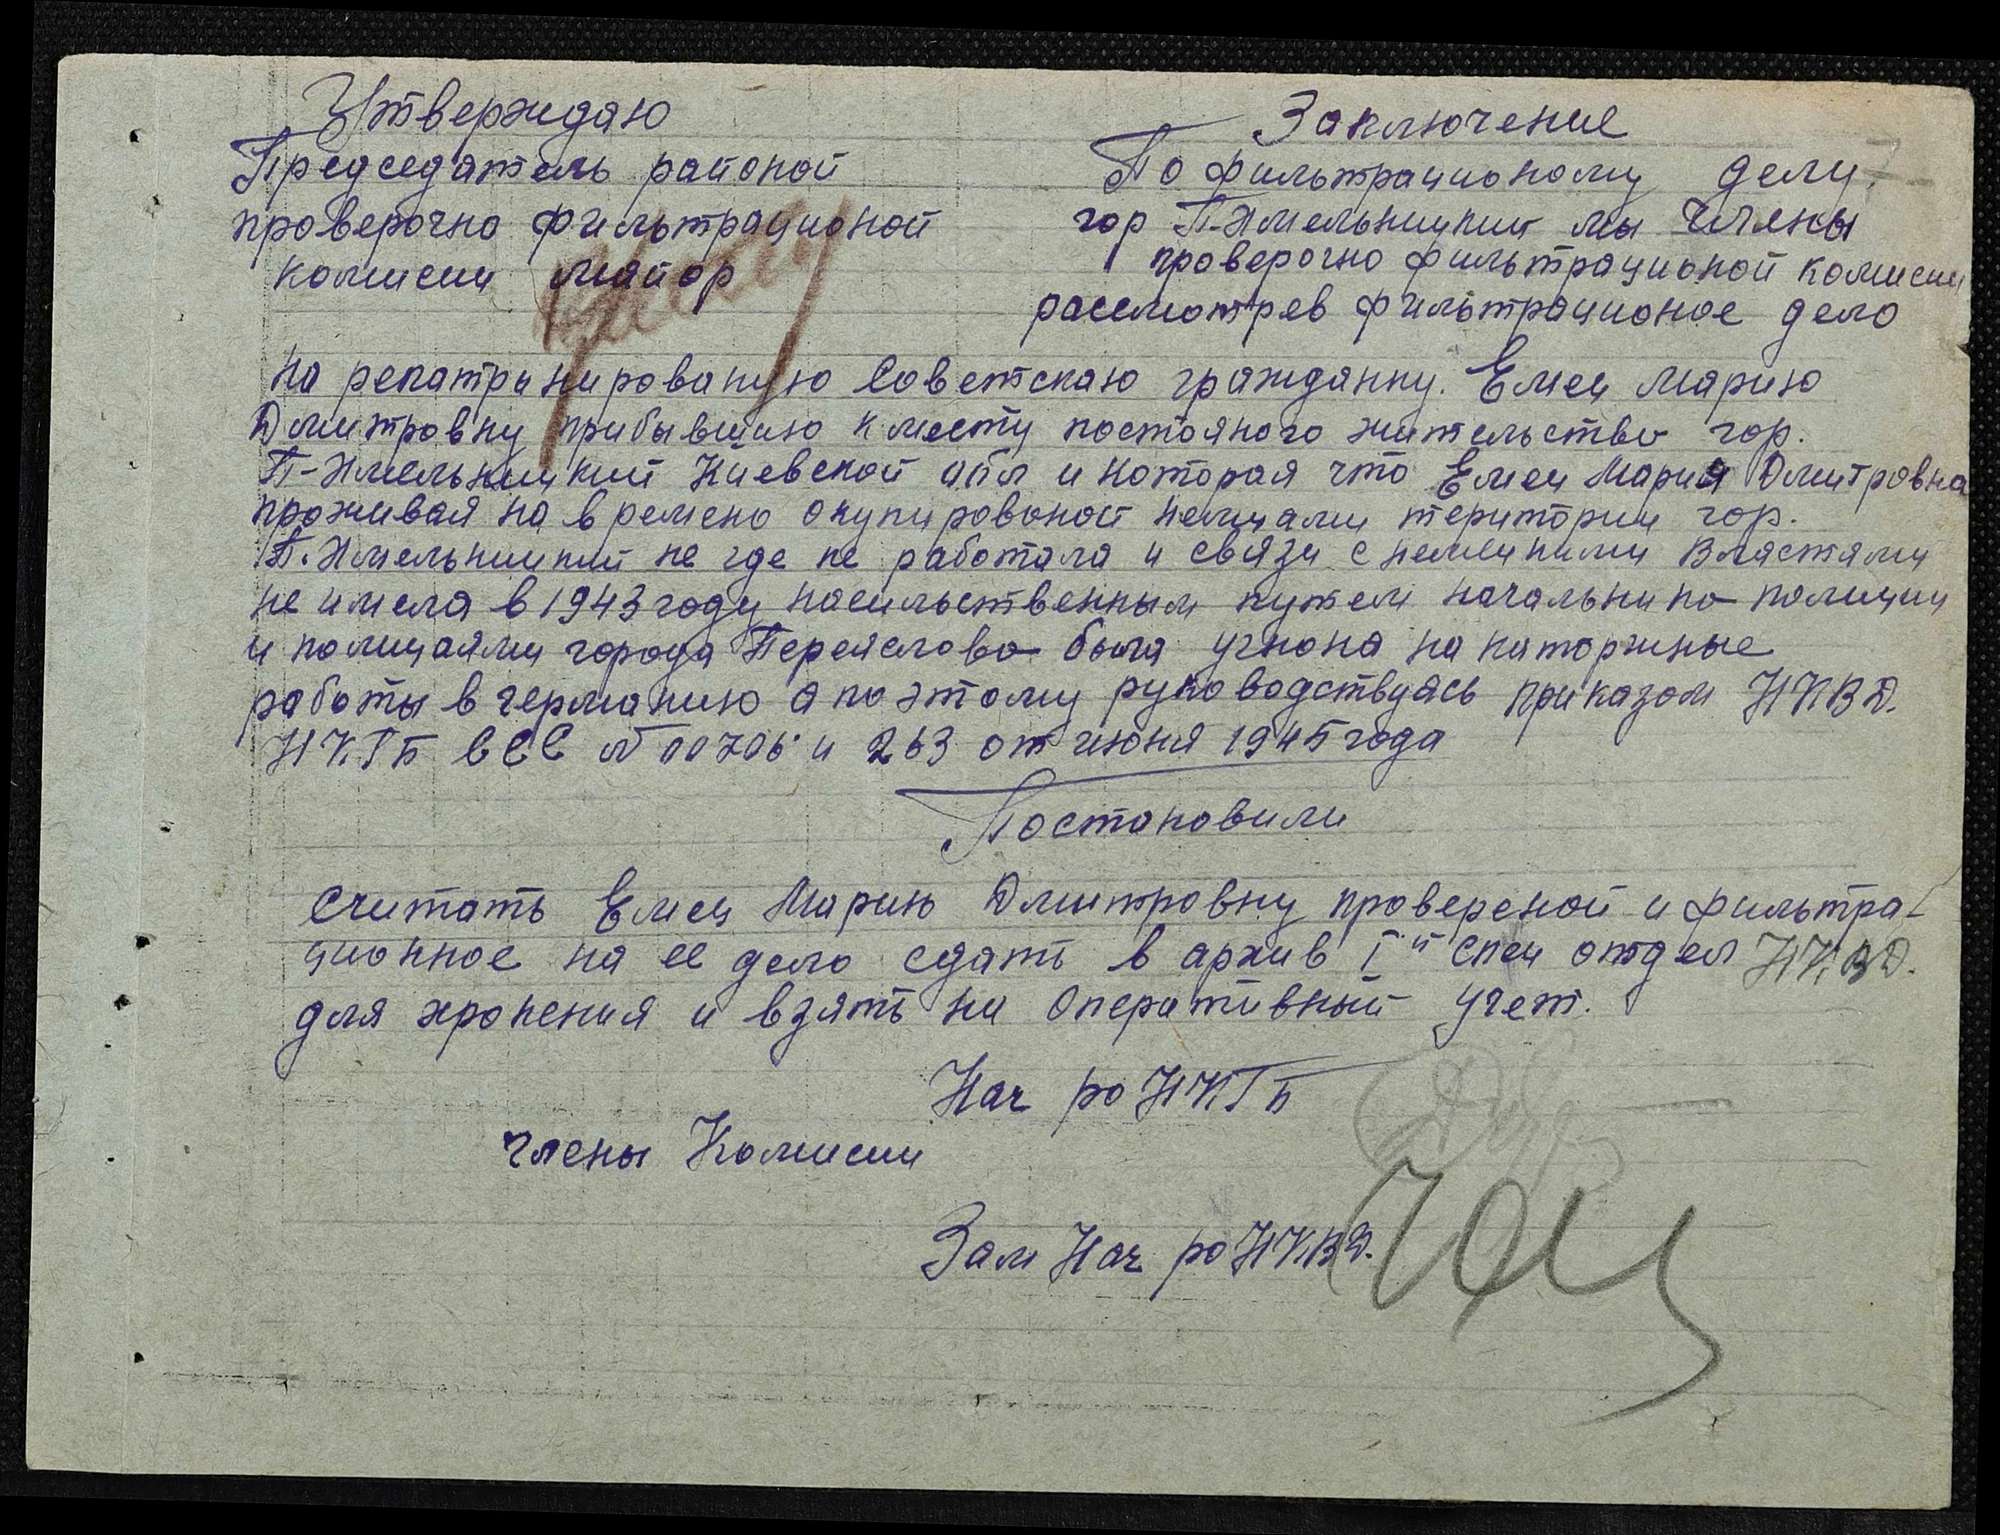 Утверждаю
Председатель районой
проверочно фильтрационой
комисии майор
Заключение
По фильтрационому делу.
гор П-Хмельницкий мы Члены
проверочно фильтрационой комисии
рассмотрев фильтрационое дело
на репатрыиированую Советскаю гражданку. Емец Марию
Дмитровну прибывшию к месту постояного жительство гор.
П-Хмельницкий Киевской обл и которая что Емец Мария Дмитровна
проживая на времено окупировоной немцами територии гор.
П. Хмельницкий не где не работала и связи с немецкими Властями
не имела в 1943 году насильственным путем начальника полиции
и полицаями города Переяслова была угнона на каторжные
работы в германию а поэтому руководствуясь приказом НКВД.
НКГБ ССС № 00706 и 263 от июня 1945 года
Постоновили
Считать Емец Марию Дмитровну провереной и фильтра-
ционное на ее дело сдать в архив I й спец отдел НКВД.
для хронения и взять на Оперативный учет.
Нач ро НКГБ
члены Комисии
Зам Нач ро НКВД.